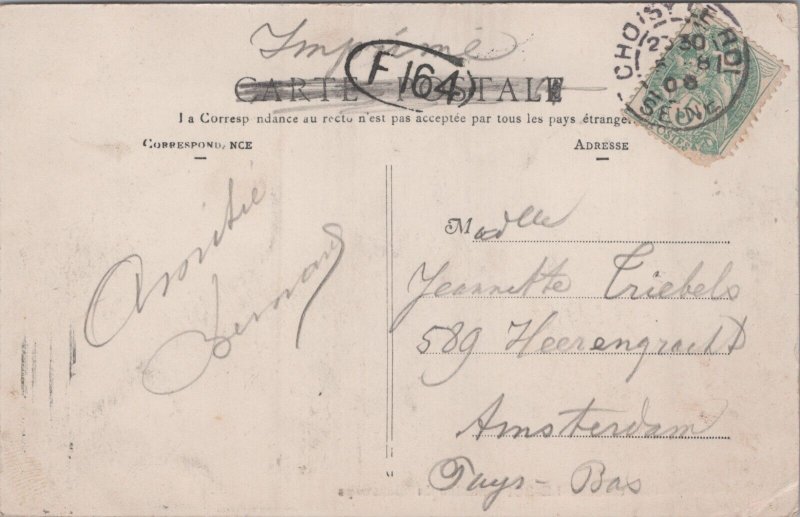 Imprimé
F 164
CARTE POSTALE
La Correspondance au recto n'est pas acceptée par tous les pays étrangers
CHOISY LE ROI
08
SEINE
POSTES
CORRESPONDANCE
ADRESSE
Amitié
Bernard
Madlle
Jeannette Triebels
589 Heerengracht
Amsterdam
Pays-Bas